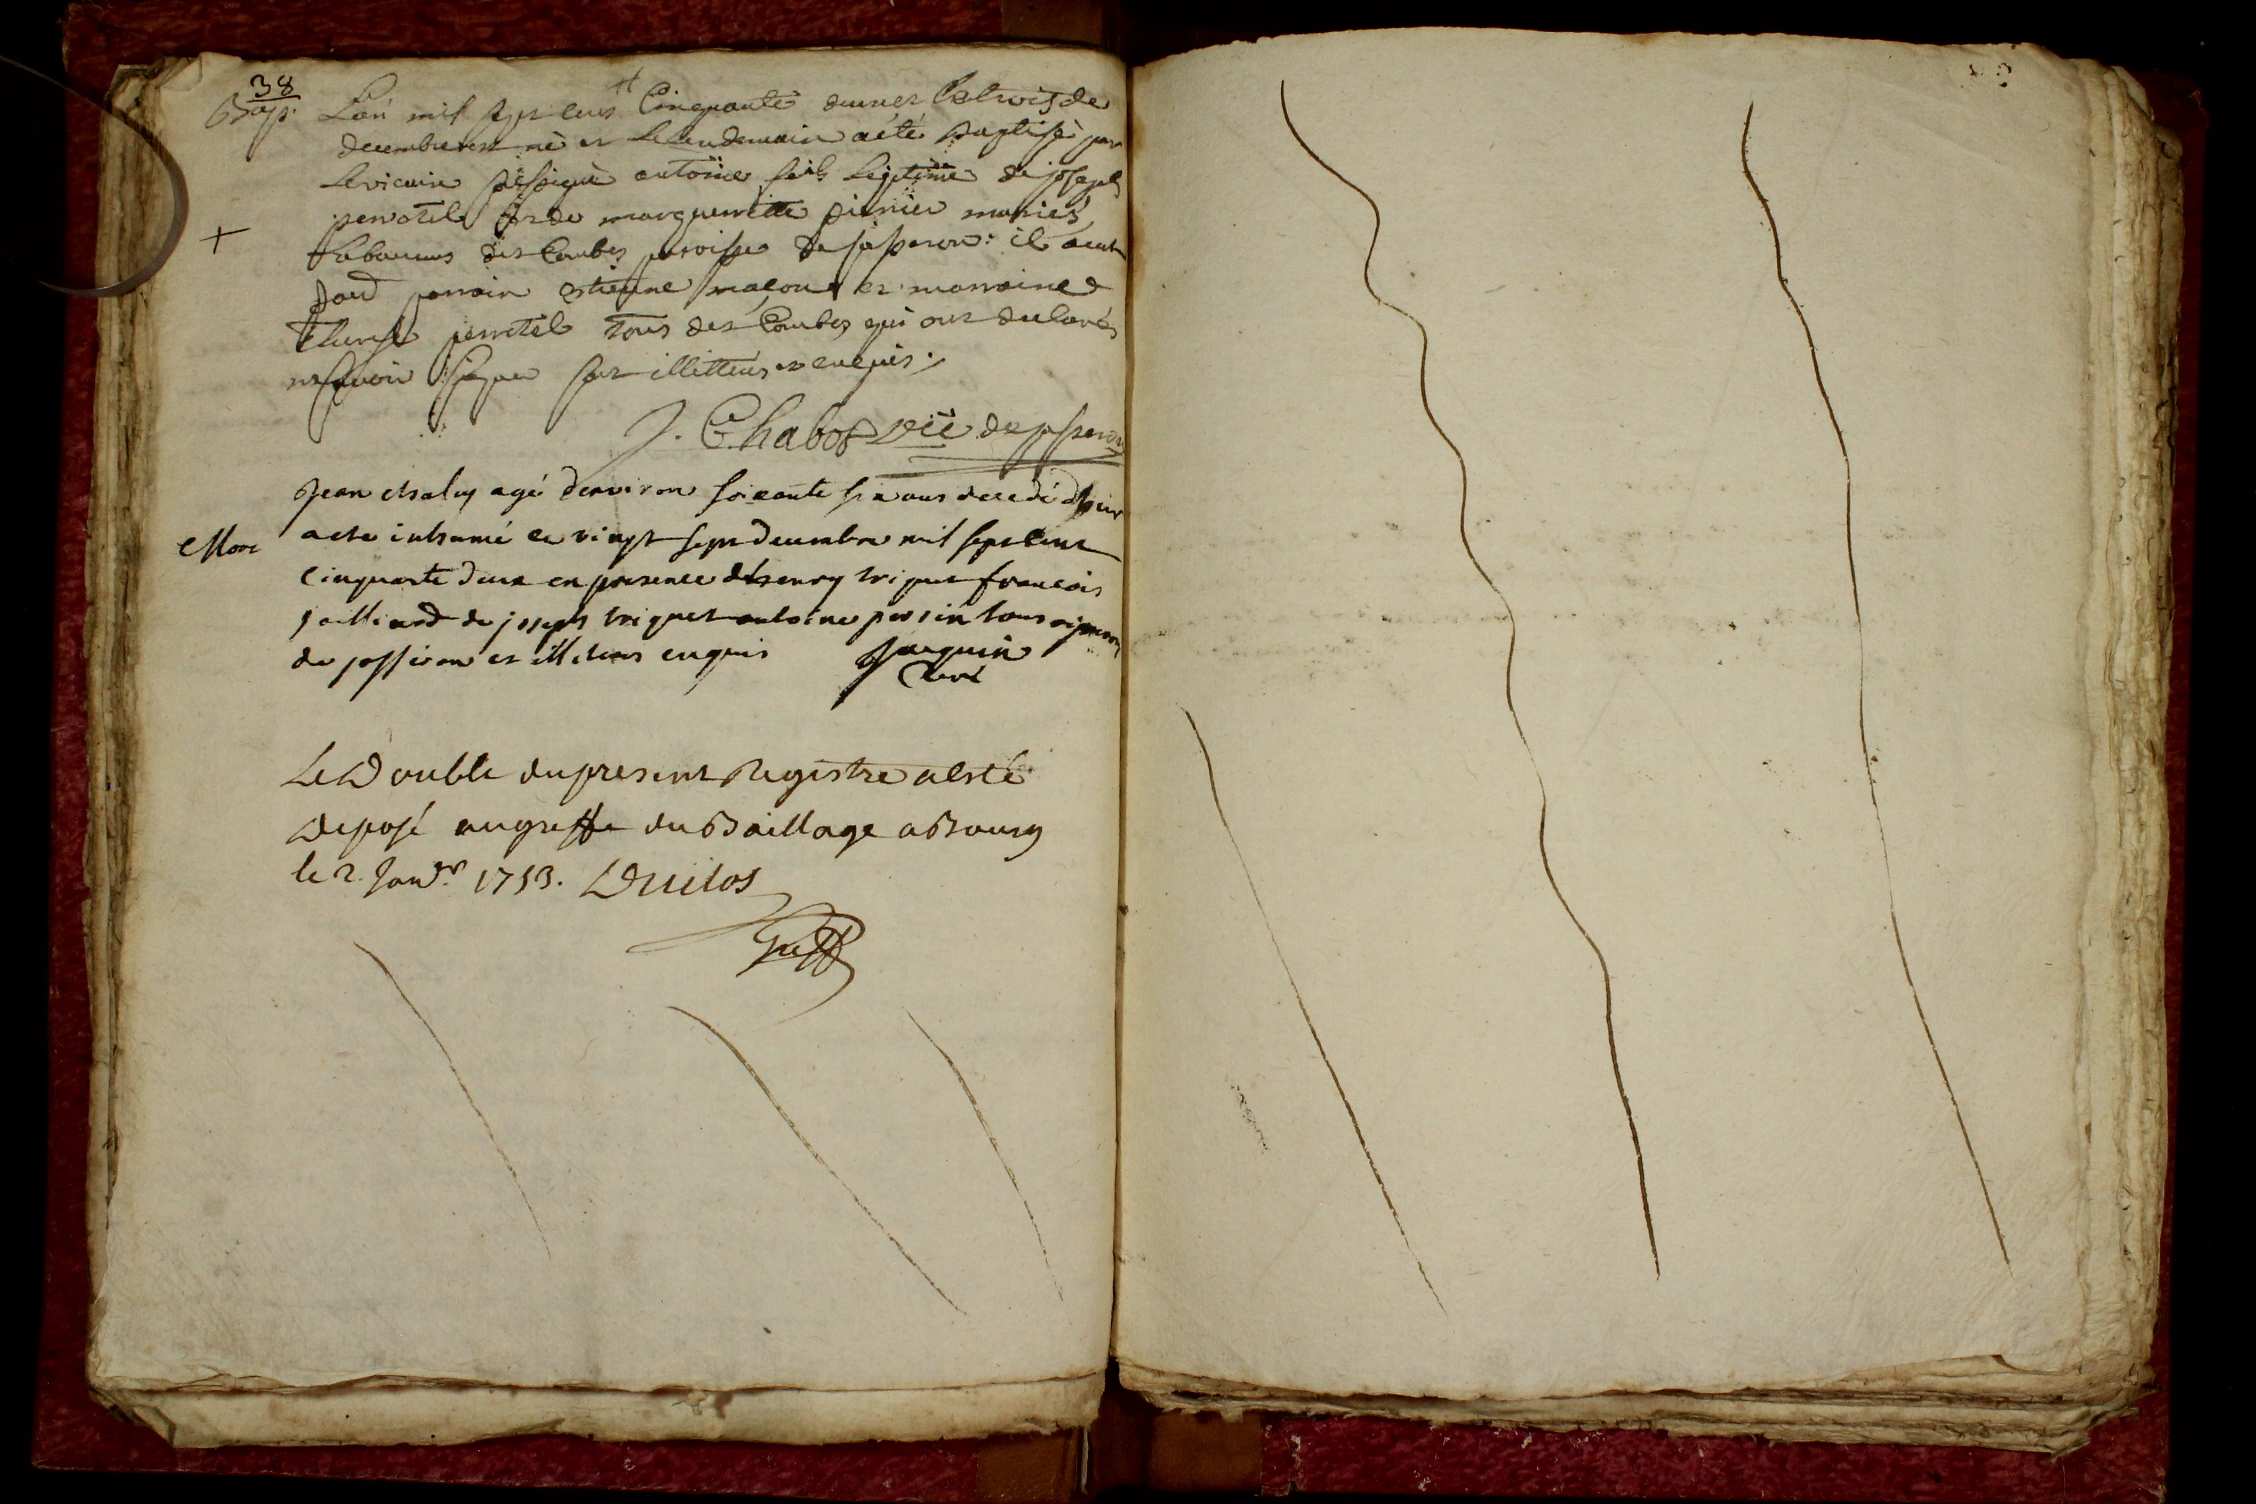 38
Bap.
L'an mil sept cens Cinquante deux et le trois de
decembre est né et le lendemain a été baptisé par
le vicaire soussigné antoine fils légitime de joseph
perrotel et de marguerritte mariés
laboureurs des Combes paroisse de jasseron: il a eut
pour parrain estienne maçon et marraine
perrotel tous des Combes qui ont declarés
ne savoir signer pour illitterés enquis.
J. Chabot vic de jasseron
Mort
Jean chaly agé d'environ soixante six ans decedé d'hier
a eté inhumé le vingt sept decembre mil sept cent
cinquante deux en presence d'henry triquet francois
gailliard de joseph triquet antoine persin tous
de jasseron et illiteres enquis
Jacquin
Curé
Le Double du present Registre a esté
Deposé au greffe du Baillage a Bourg
le 2. Janvr. 1753.
Greff